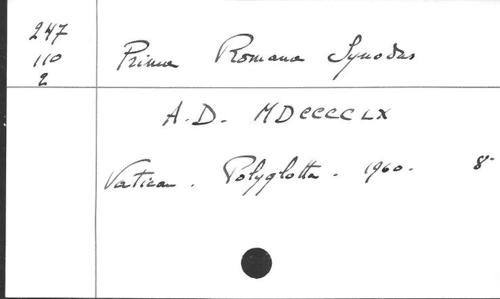 247
110
2
Prima Romana Synodus
A.D. MDCCCCLX
Vatican. Polyglotta. 1960. 8-